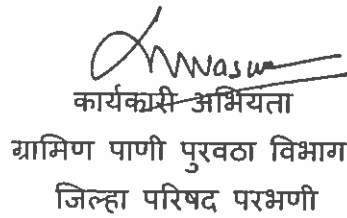 कार्यकारी अभियता
ग्रामिण पाणी पुरवठा विभाग
जिल्हा परिषद परभणी